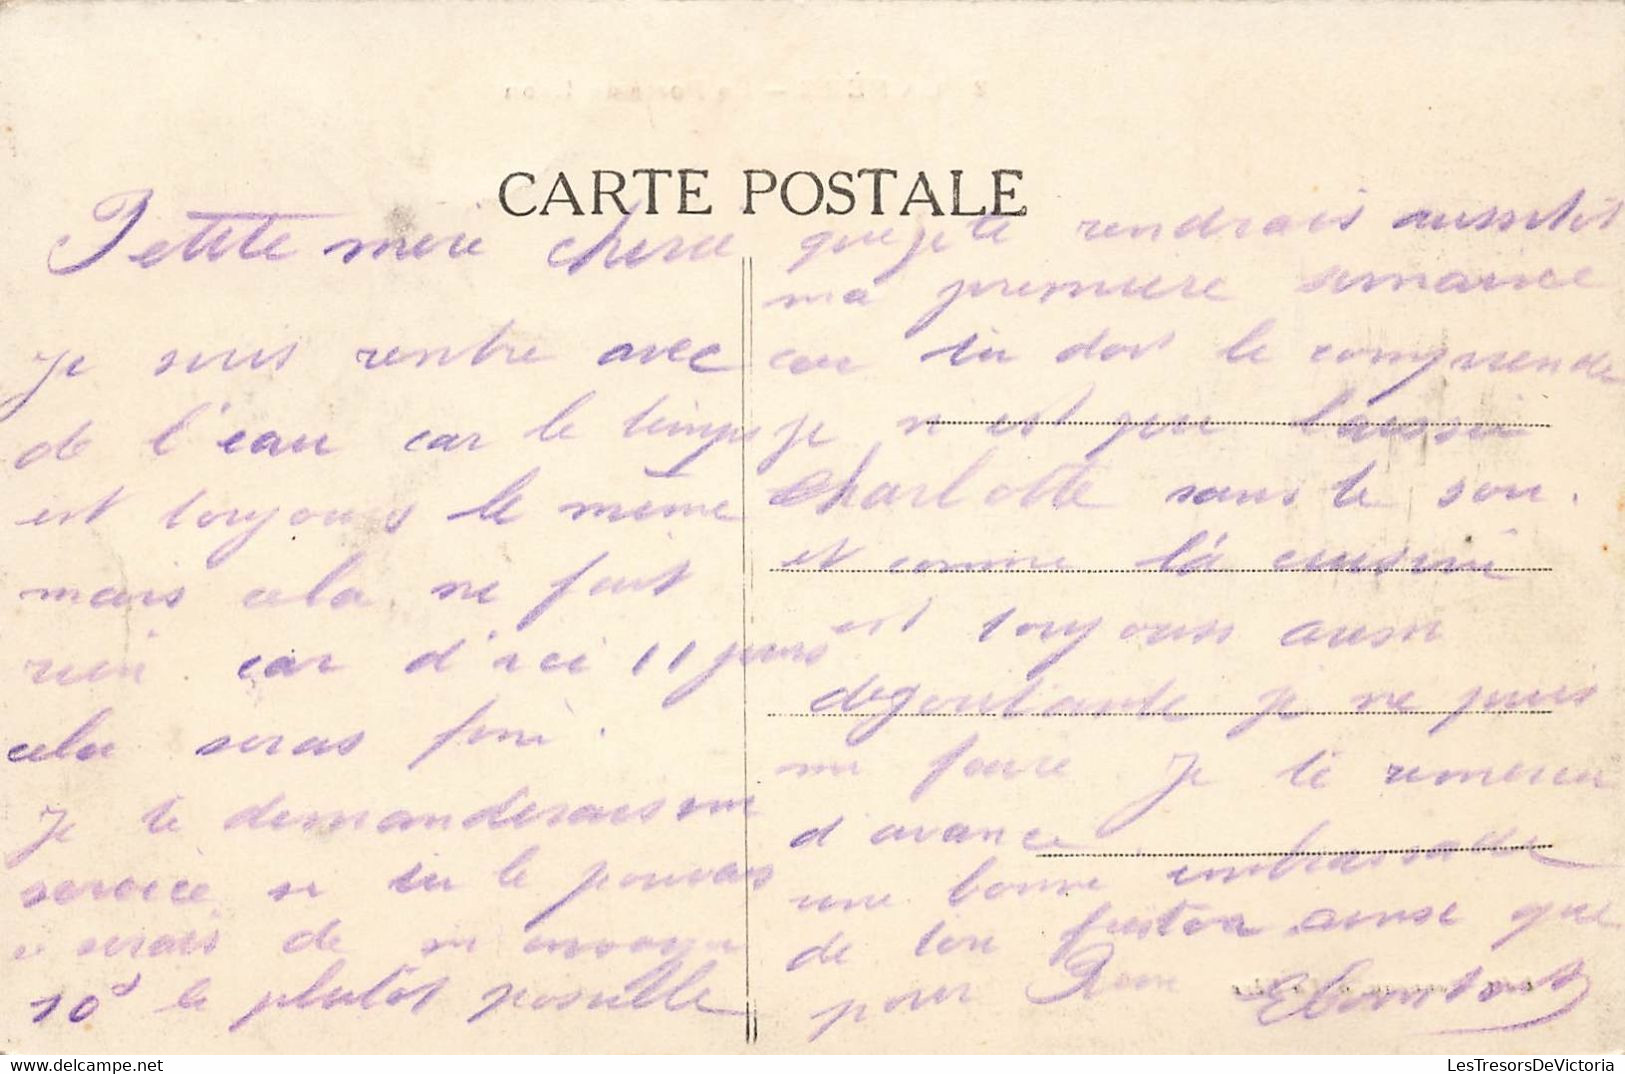 CARTE POSTALE
Petite mere cherie
je suis rentre avec
de l'eau car le temps
est toujours le même
mais cela ne fait
rien car d'ici 11 jours
cela seras fini.
Je te demanderais un
service si tu le pouvais
serais de m'envoyer
10 le plutôt possible
que je te rendrais aussitôt
ma premiere semaine
car tu dois le comprendre
je n'est pu laisser
Charlotte sans le sou.
et comme la cuisine
est toujours aussi
degoutante je ne puis
me faire je te remercie
d'avance
une bonne embrassade
de ton fiston ainse que
pour
LesTresorsDeVictoria